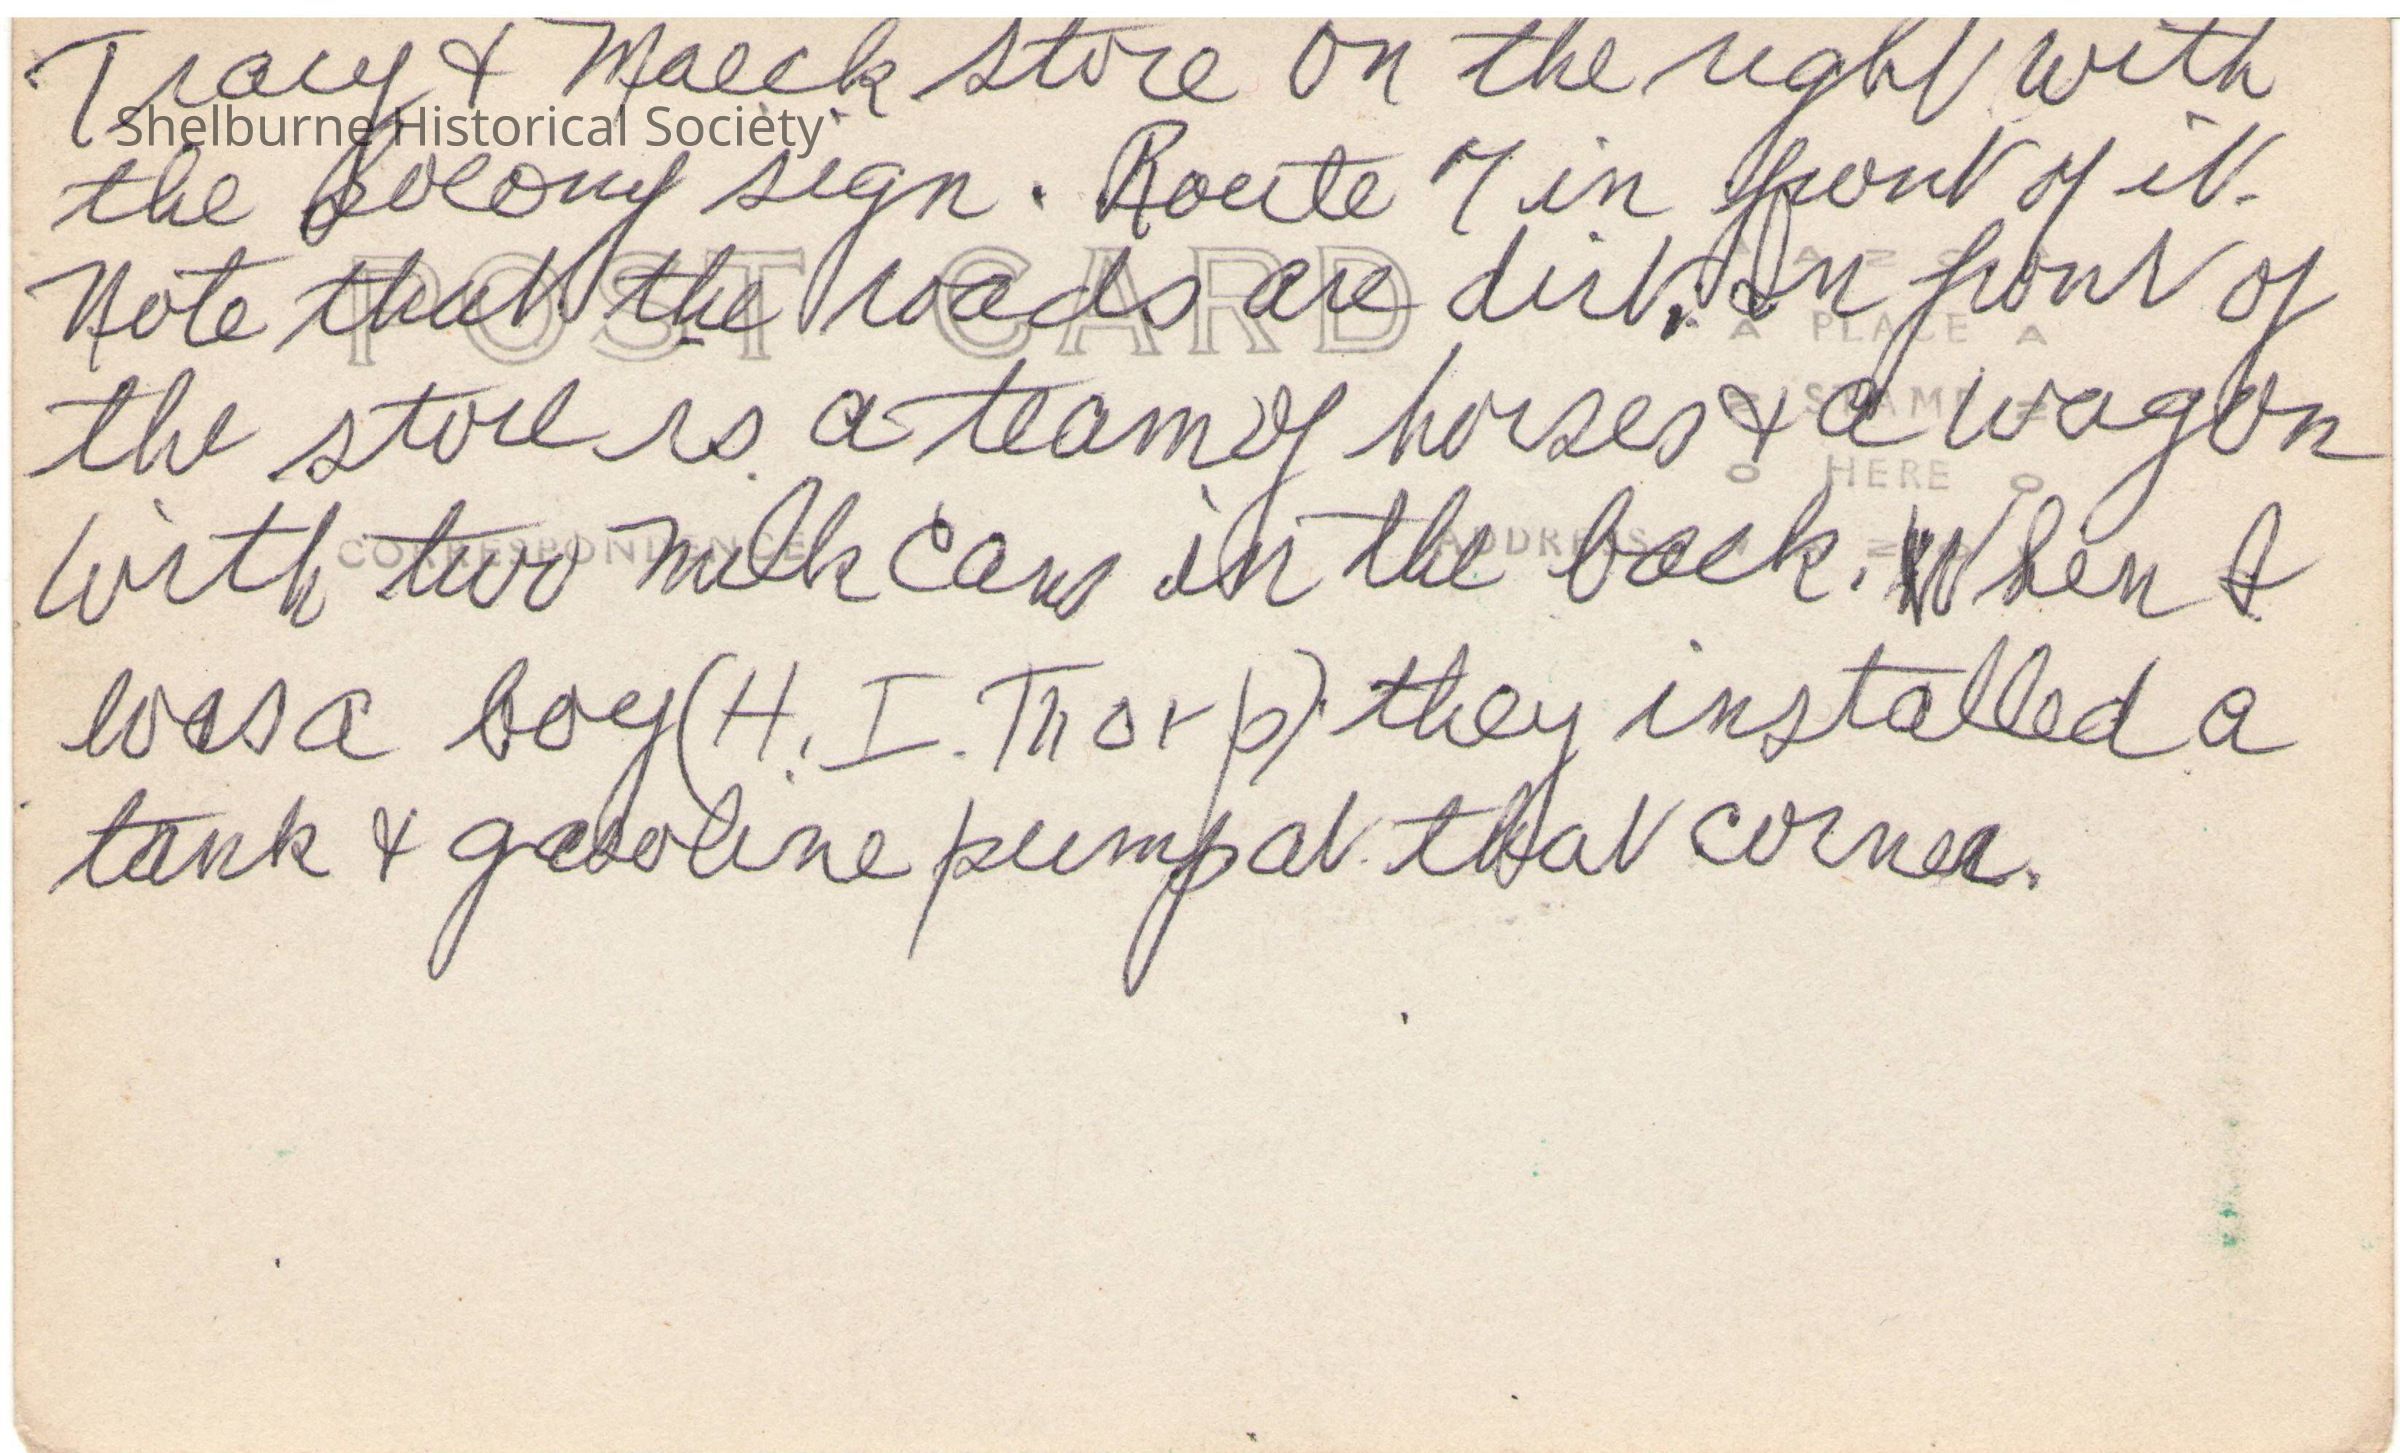 Tracy & Maeck store on the right with
Shelburne Historical Society
the Socony sign. Route 7 in front of it.
POST CARD
Note that the roads are dirt. In front of
PLACE
the store is a team of horses & a wagon
STAMP
HERE
CORRESPONDENCE
ADDRESS
with two milk cans in the back. When I
was a boy (H. I. Thorp) they installed a
tank & gasoline pump at that corner.